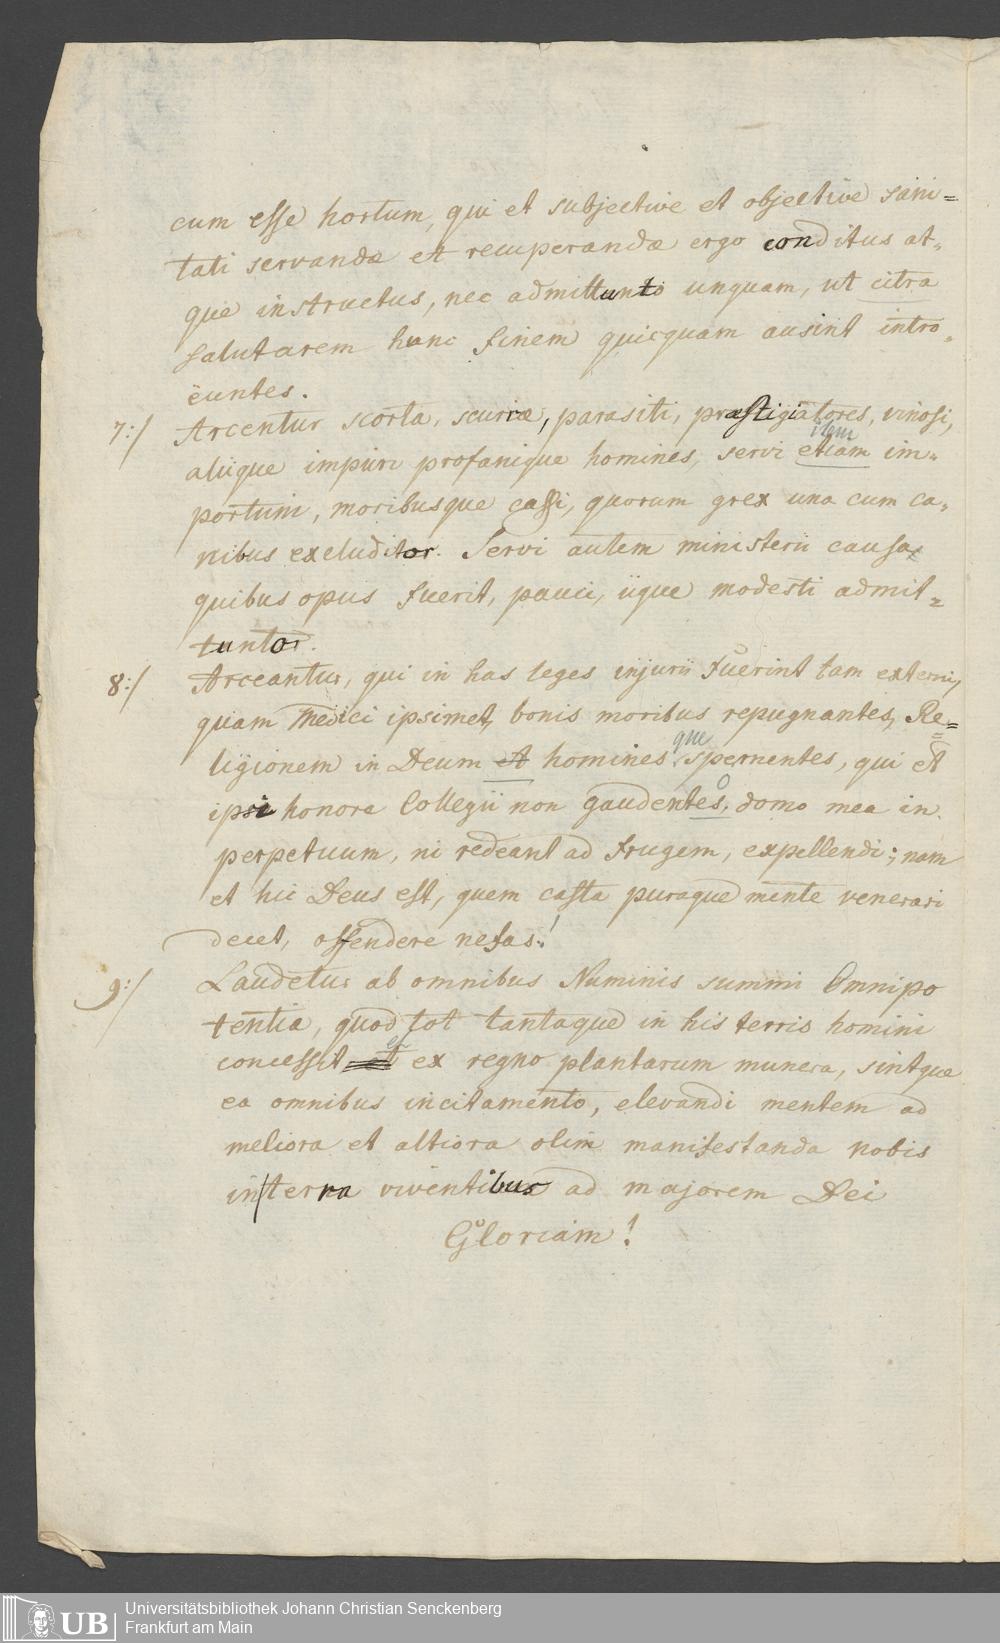 cum esse hortum, qui et subjective et objective sani=
tati servandæ et recuperandæ ergo conditus at=
que instructus, nec admittunto unquam, ut citra
salutarem hunc finem quicquam ausint intro=
ëuntes.
7:/ Arcentur scorta, scurræ, parasiti, præstigiatores, vinosi,
item
aliique impuri profanique homines, servi etiam im=
portuni, moribusque cassi, quorum grex una cum ca=
nibus excluditor. Servi autem ministerii causa,
quibus opus fuerit, pauci, iique modesti admit=
tuntor.
8:/ Arceantur, qui in has leges injurii fuerint tam externi,
quam Medici ipsimet, bonis moribus repugnantes, Re=
ligionem in Deum et homines que spernentes, qui et
ipsi honore Collegii non gaudentes, domo mea in
perpetuum, ni redeant ad frugem, expellendi; nam
et hic Deus est, quem casta puraque mente venerari
decet, offendere nefas!
9:/ Laudetur ab omnibus Numinis summi Omnipo
tentia, quod tot tantaque in his terris homini
concessit et ex regno plantarum munera, sintque
ea omnibus incitamento, elevandi mentem ad
meliora et altiora olim manifestanda nobis
in terra viventibus ad majorem Dei
Gloriam!
UB
Universitätsbibliothek Johann Christian Senckenberg
Frankfurt am Main